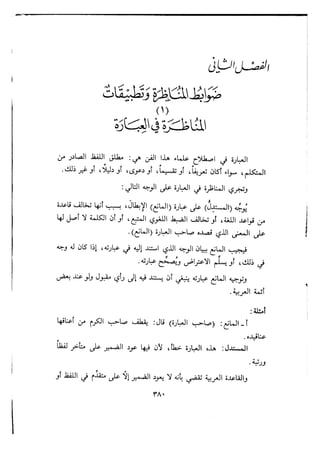 الفصل الثاني
ضوابط المناظرة وتطبيقات
(١)
المناظرة في العبارة
العبارة في اصطلاح علماء هذا الفن هي: مطلق اللفظ الصادر من
المتكلم، سواء أكان تعريفاً، أو تقسيماً، أو دعوى، أو دليلاً، أو غير ذلك.
وتجري المناظرة في العبارة على الوجه التالي:
يوجّه (المستدلّ) على عبارة (المانع) الإبطال، بسبب أنها تخالف قاعدة
من قواعد اللغة، أو تخالف الضبط اللغوي المتبع، أو أن الكلمة لا أصل لها
على المعنى الذي قصده صاحب العبارة (المانع).
فيجيب المانع ببيان الوجه الذي استند إليه في عبارته، إذا كان له وجه
في ذلك، أو يسلّم الاعتراض ويصحّح عبارته.
وتوجيه المانع عبارته ينبغي أن يستند فيه إلى رأي مقبول ولو عند بعض
أئمة العربية.
أمثلة:
أ ـ المانع: (صاحب العبارة) قال: يقطف صاحب الكرم من أعنابها
عناقيده.
المستدل: هذه العبارة خطأ، لأن فيها عود الضمير على متأخر لفظاً
ورتبة.
والقاعدة العربية تقضي بأنه لا يعود الضمير إلاّ على متقدم في اللفظ أو
٣٨٠